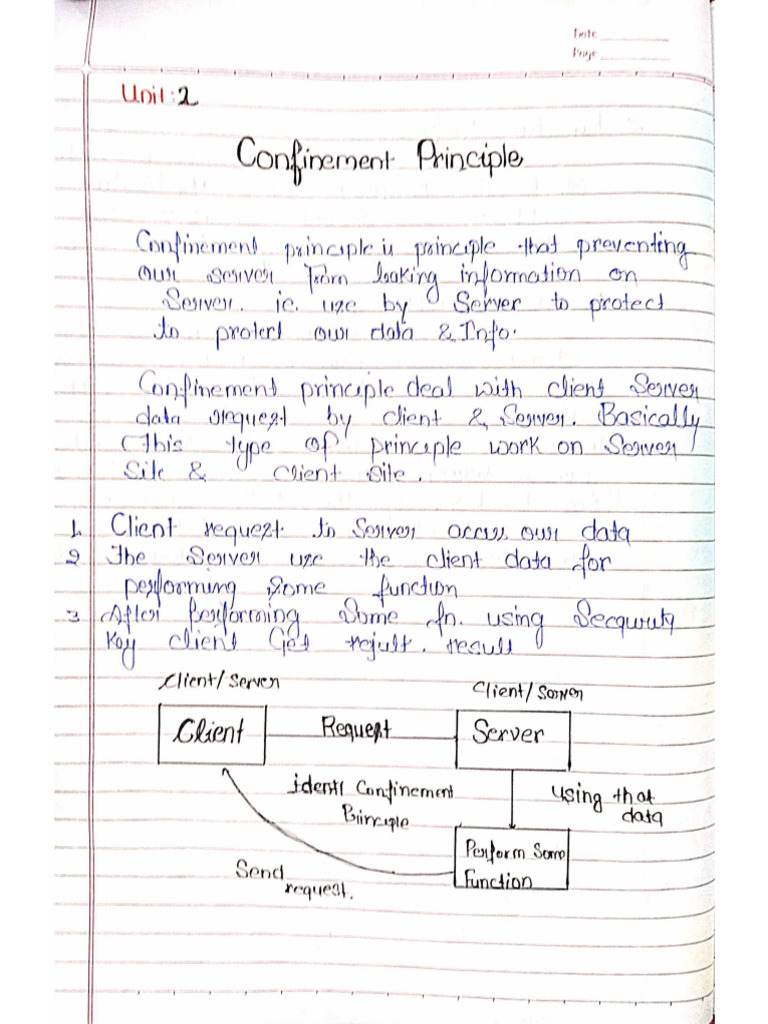 Date
Page
Unit: 2
Confinement Principle
Confinement principle is principle that preventing
our server from leaking information on
Server. ie. use by Server to protect
to protect our data & Info.
Confinement principle deal with client Server
data request by client & Server. Basically
This type of principle work on Server
Site & client site.
1. Client request to Server occus our data
2 The Server use the client data for
performing some function
3 After performing Some fn. using Secquruty
Key client Get rejult. result
Client/Server
Client/Server
Client
Request
Server
identi Confinement
Principle
using that
data
Perform Some
Function
Send
request.